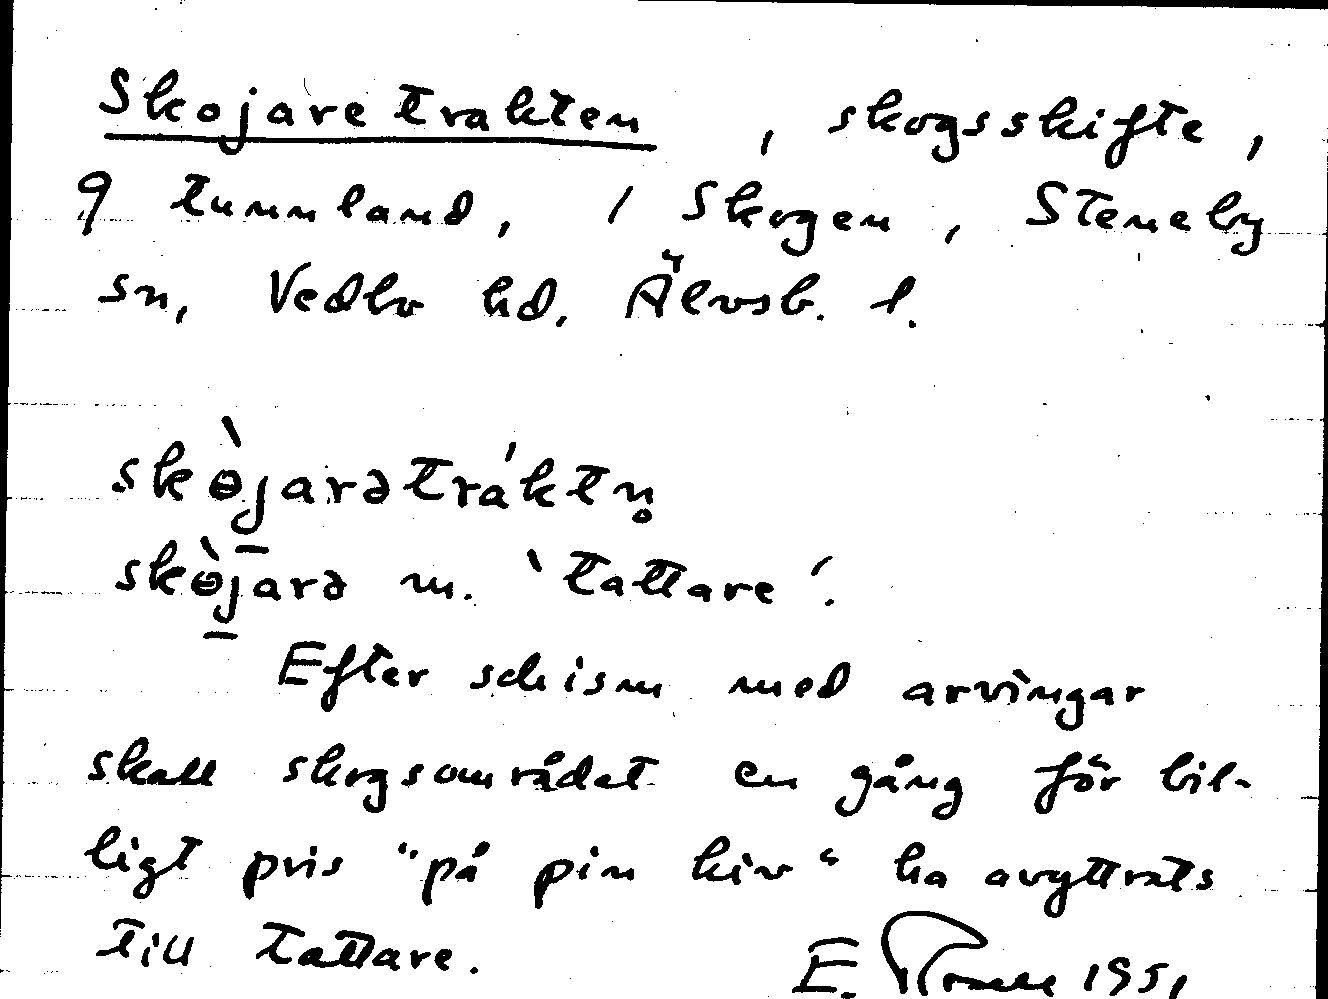 Skojaretrakten, skogsskifte,
9 tunnland, i Skogen, Steneby
sn, Vedbo hd, Älvsb. l.
skɵ̀jarətráktn̥
skɵ̀jarə m. 'tattare'.
Efter schism med arvingar
skall skogsområdet en gång för bil-
ligt pris "på pin kiv" ha avyttrats
till tattare.
E. 1951